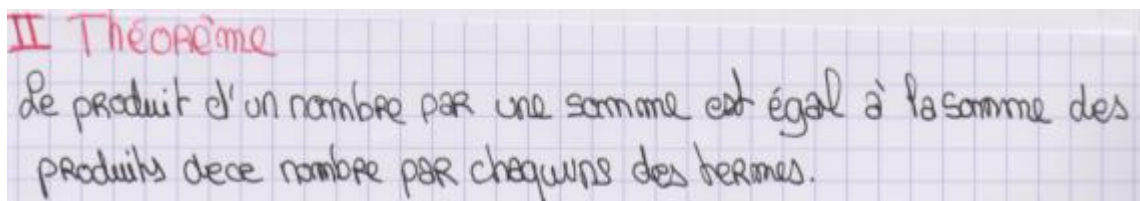 II Théorème
Le produit d'un nombre par une somme est égal à la somme des
produits de ce nombre par chaquuns des termes.